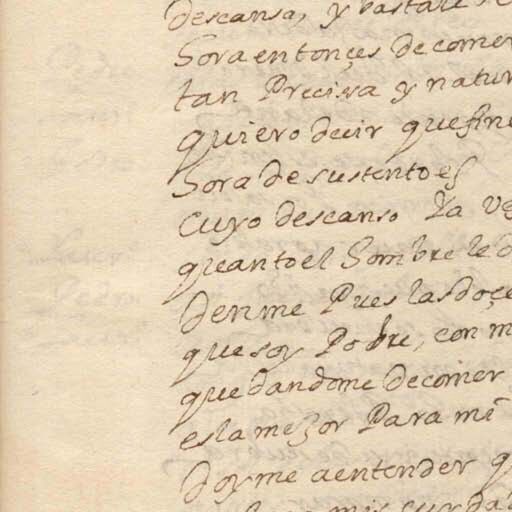 descansa, y bastale
Sora entonçes de comer
tan Precissa y natur
quiero decir que fine
Sora de sustento es
Cuyo descanso Ya ve
quanto el Sombre le d
Denme Pues las doçe
que soy Pobre, con m
que dandome de comer
es la mejor Para mi
Doyme a entender q